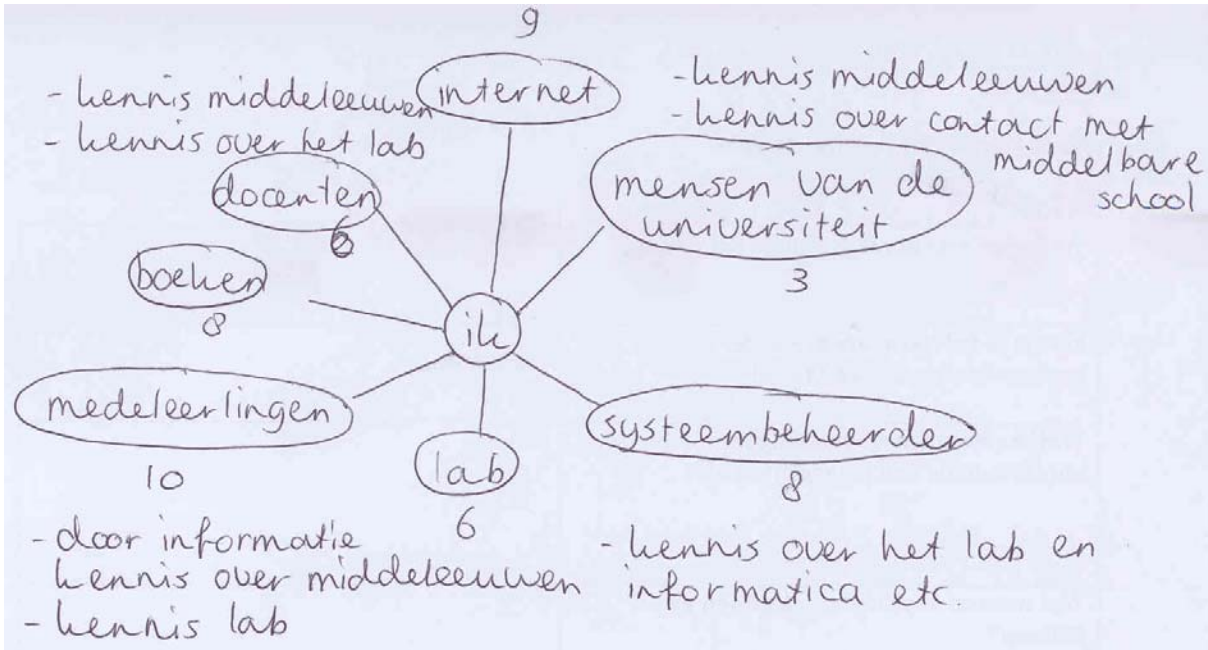 9
internet
- kennis middeleeuwen
- kennis over het lab
docenten
6
- kennis middeleeuwen
- kennis over contact met
middelbare
school
mensen van de
universiteit
3
boeken
8
ik
medeleerlingen
10
lab
6
systeembeheerder
8
- door informatie
kennis over middeleeuwen
- kennis lab
- kennis over het lab en
informatica etc.